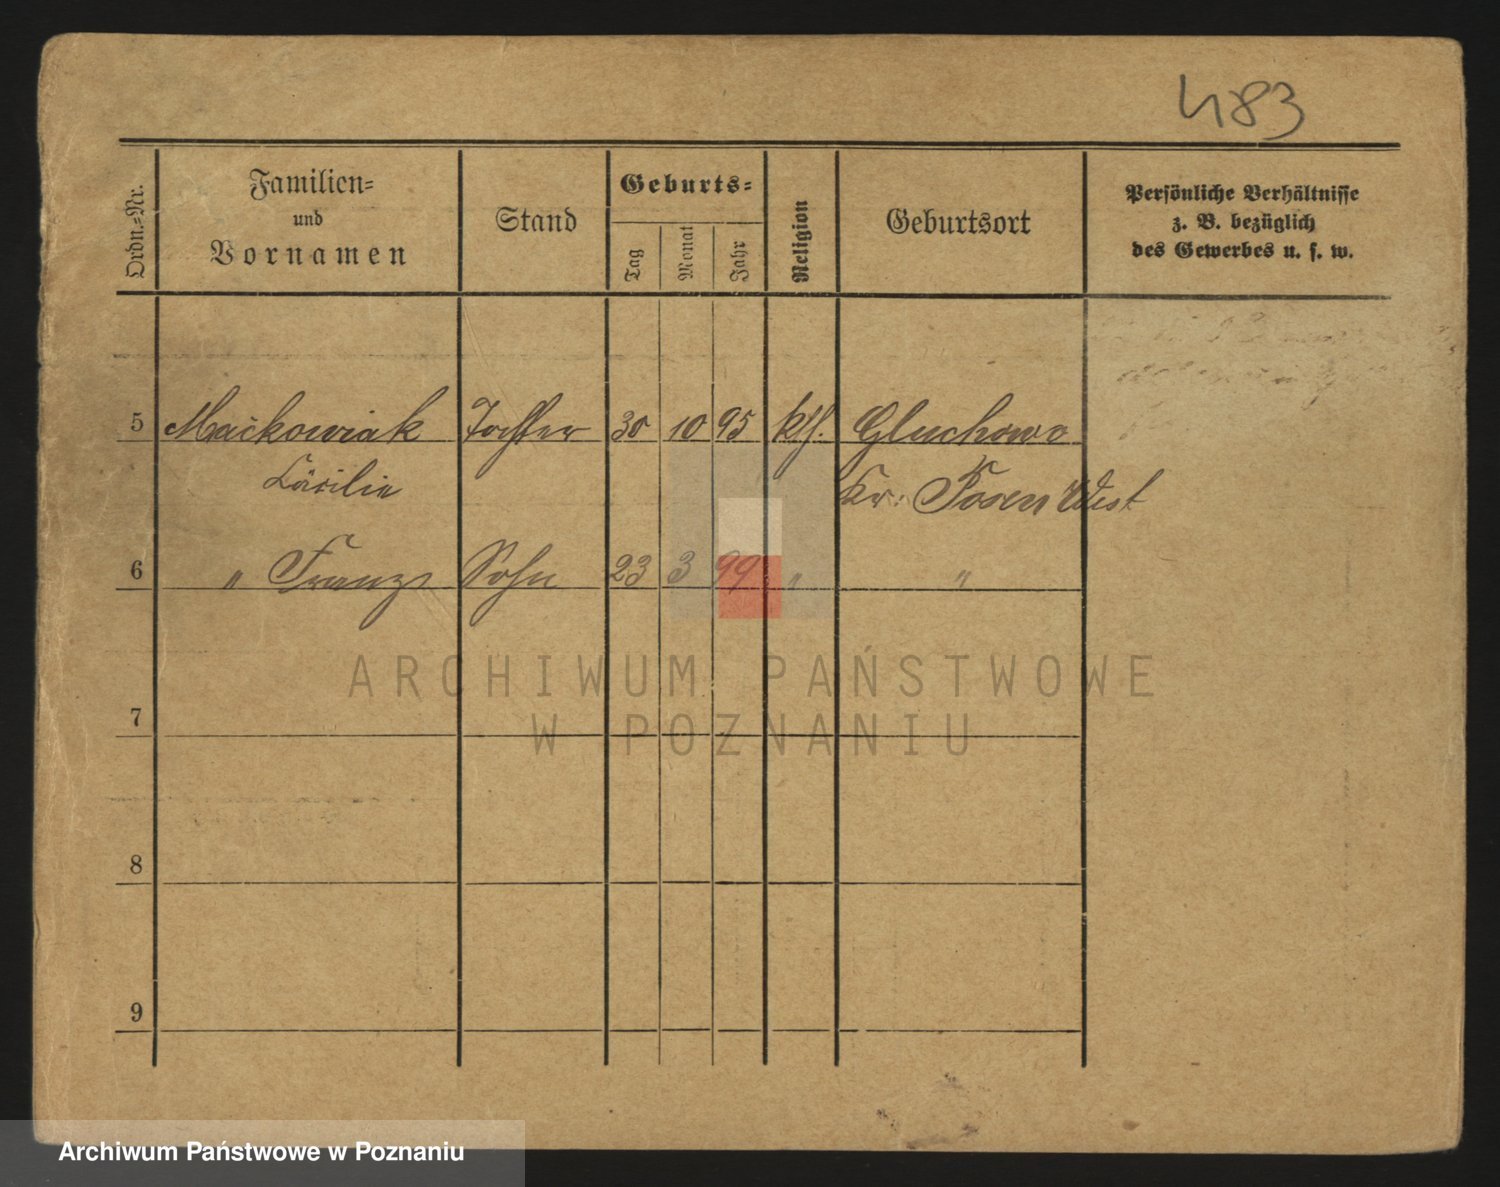 483
Ordn.-Nr.
Familien-
und
Vornamen
Stand
Geburts-
Tag
Monat
Jahr
Religion
Geburtsort
Persönliche Verhältnisse
z. B. bezüglich
des Gewerbes u. s. w.
5 Maćkowiak Tochter 30 10 95 kth. Gluchowo
Cäcilie Kr. Posen West
6 " Franz Sohn 23 3 99 " "
ARCHIWUM PAŃSTWOWE
7
W POZNANIU
8
9
Archiwum Państwowe w Poznaniu